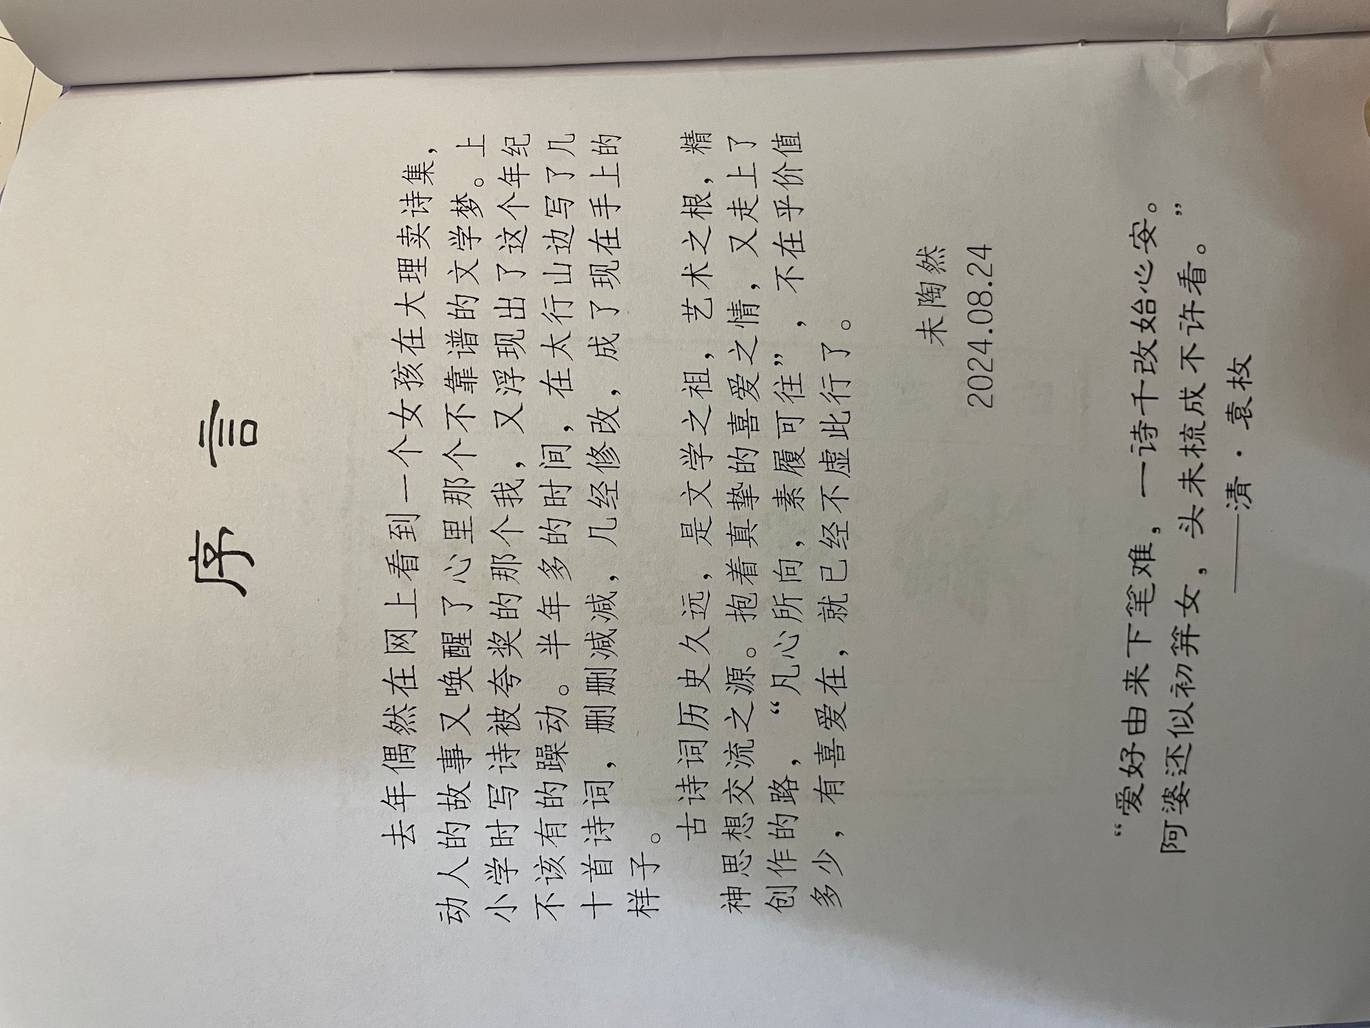 序言
去年偶然在网上看到一个女孩在大理卖诗集，
动人的故事又唤醒了心里那个不靠谱的文学梦。上
小学时写诗被夸奖的那个我，又浮现出了这个年纪
不该有的躁动。半年多的时间，在太行山边写了几
十首诗词，删删减减，几经修改，成了现在手上的
样子。
古诗词历史久远，是文学之祖，艺术之根，精
神思想交流之源。抱着真挚的喜爱之情，又走上了
创作的路，“凡心所向，素履可往”，不在乎价值
多少，有喜爱在，就已经不虚此行了。
未陶然
2024.08.24
“爱好由来下笔难，一诗千改始心安。
阿婆还似初笄女，头未梳成不许看。”
——清·袁枚